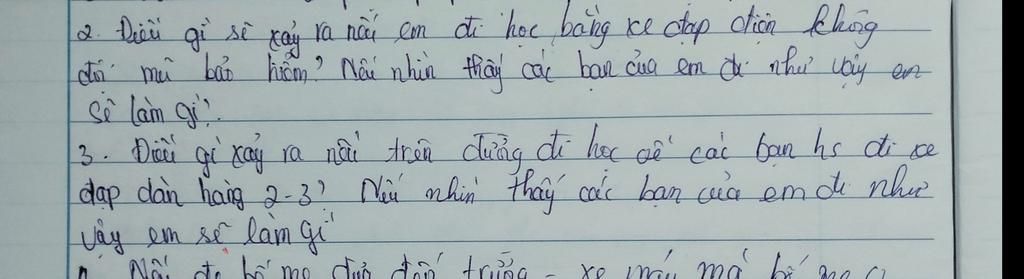 2. Điều gì sẽ xảy ra nếu em đi học bằng xe đạp điện không
đội mũ bảo hiểm? Nếu nhìn thấy các bạn của em đi như vậy em
sẽ làm gì?
3. Điều gì xảy ra nếu trên đường đi học về các bạn hs đi xe
đạp dàn hàng 2-3? Nếu nhìn thấy các bạn của em đi như
vậy em sẽ làm gì
Nếu đi bố mẹ đưa đến trường - xe máy mà bố mẹ